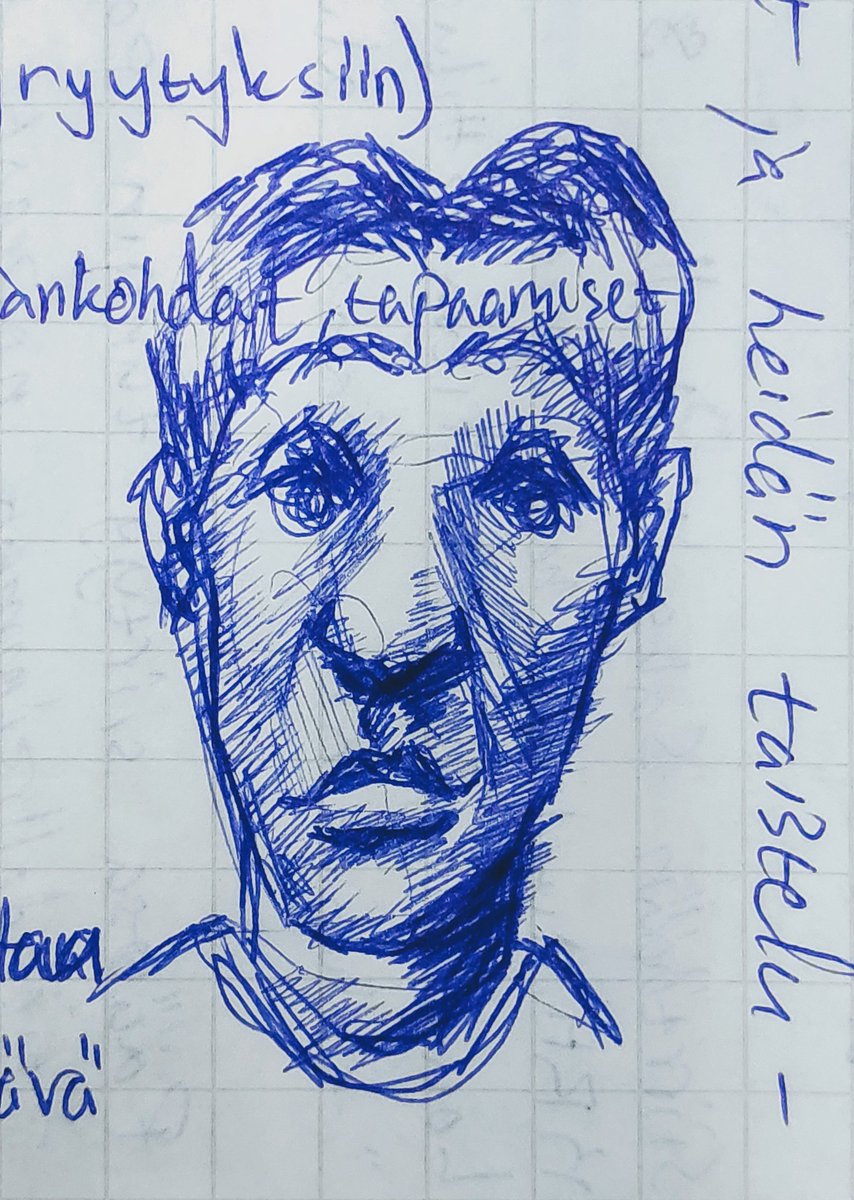 ryytyksiin)
ankohdat, tapaamiset
ja heidän taistelu -
tava
ävä